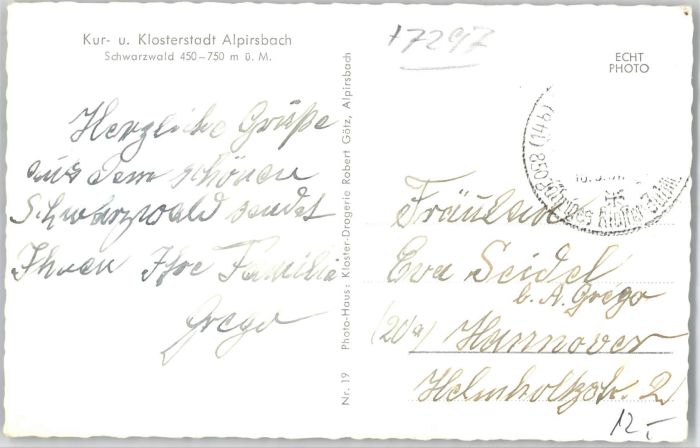 Kur- u. Klosterstadt Alpirsbach
Schwarzwald 450–750 m ü. M.
+7297
ECHT
PHOTO
Herzliche Grüße
aus dem schönen
Schwarzwald sendet
Ihnen Ihre Familie
Grego
Nr. 19 Photo-Haus: Kloster-Drogerie Robert Götz, Alpirsbach
(14b)
850
Fräulein
Eva Seidel
b. A. Grego
(20a) Hannover
Helmholtzstr. 2
12,-